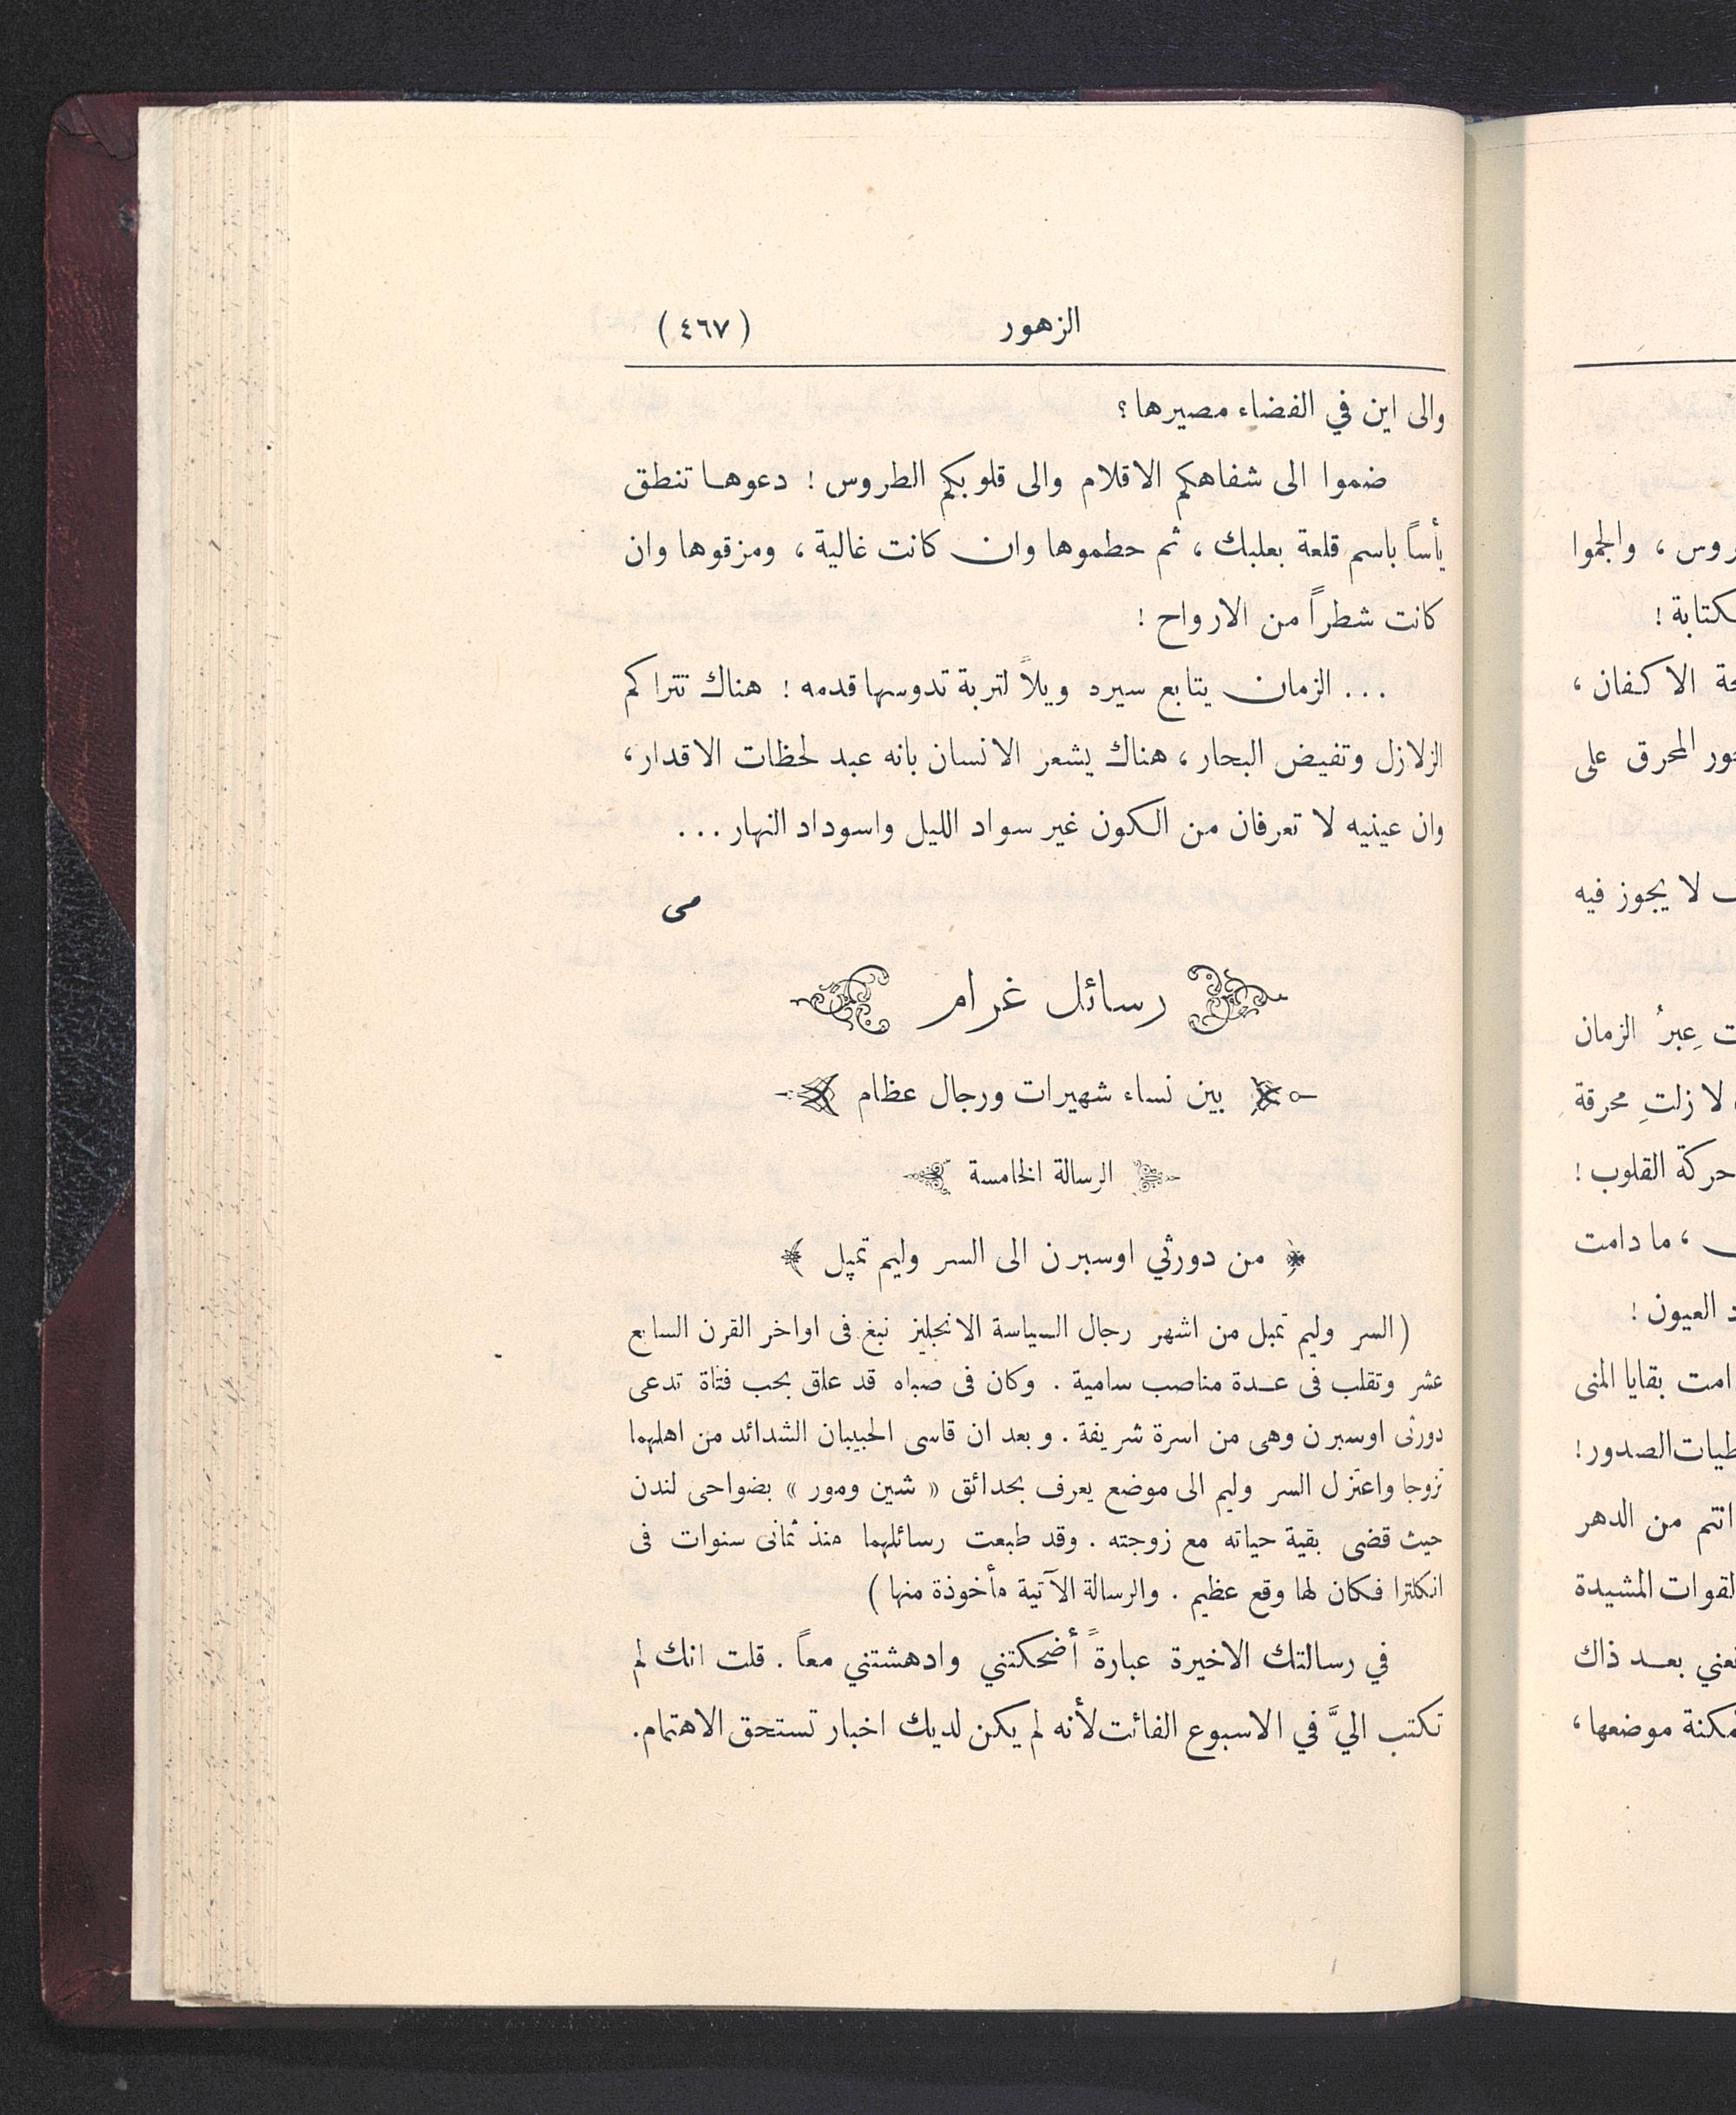 الزهور (٤٦٧)
والى اين في الفضاء مصيرها ؟
ضموا الى شفاهكم الاقلام والى قلوبكم الطروس ! دعوها تنطق
يأساً باسم قلعة بعلبك ، ثم حطموها وان كانت غالية ، ومزقوها وان
كانت شطراً من الارواح !
... الزمان يتابع سيره ويلاً لتربة تدوسها قدمه ! هناك تتراكم
الزلازل وتفيض البحار ، هناك يشعر الانسان بانه عبد لحظات الاقدار ،
وان عينيه لا تعرفان من الكون غير سواد الليل واسوداد النهار ...
مى
رسائل غرام
بين نساء شهيرات ورجال عظام
الرسالة الخامسة
من دورثي اوسبرن الى السر وليم تمپل
(السر وليم تمبل من اشهر رجال السياسة الانجليز نبغ فى اواخر القرن السابع
عشر وتقلب فى عدة مناصب سامية . وكان فى صباه قد علق بحب فتاة تدعى
دورثى اوسبرن وهى من اسرة شريفة . وبعد ان قاسى الحبيبان الشدائد من اهلهما
تزوجا واعتزل السر وليم الى موضع يعرف بحدائق « شين ومور » بضواحى لندن
حيث قضى بقية حياته مع زوجته . وقد طبعت رسائلهما منذ ثمانى سنوات فى
انكلترا فكان لها وقع عظيم . والرسالة الآتية مأخوذة منها )
في رسالتك الاخيرة عبارةً أضحكتني وادهشتني معاً . قلت انك لم
تكتب اليَّ في الاسبوع الفائت لأنه لم يكن لديك اخبار تستحق الاهتمام .
والجموا
كتابة !
الاكفان ،
المحرق على
لا يجوز فيه
عِبرُ الزمان
لا زلتِ محرقة
حركة القلوب !
، ما دامت
العيون !
بقايا المنى
الصدور !
انتم من الدهر
القوات المشيدة
بعد ذاك
موضعها ،